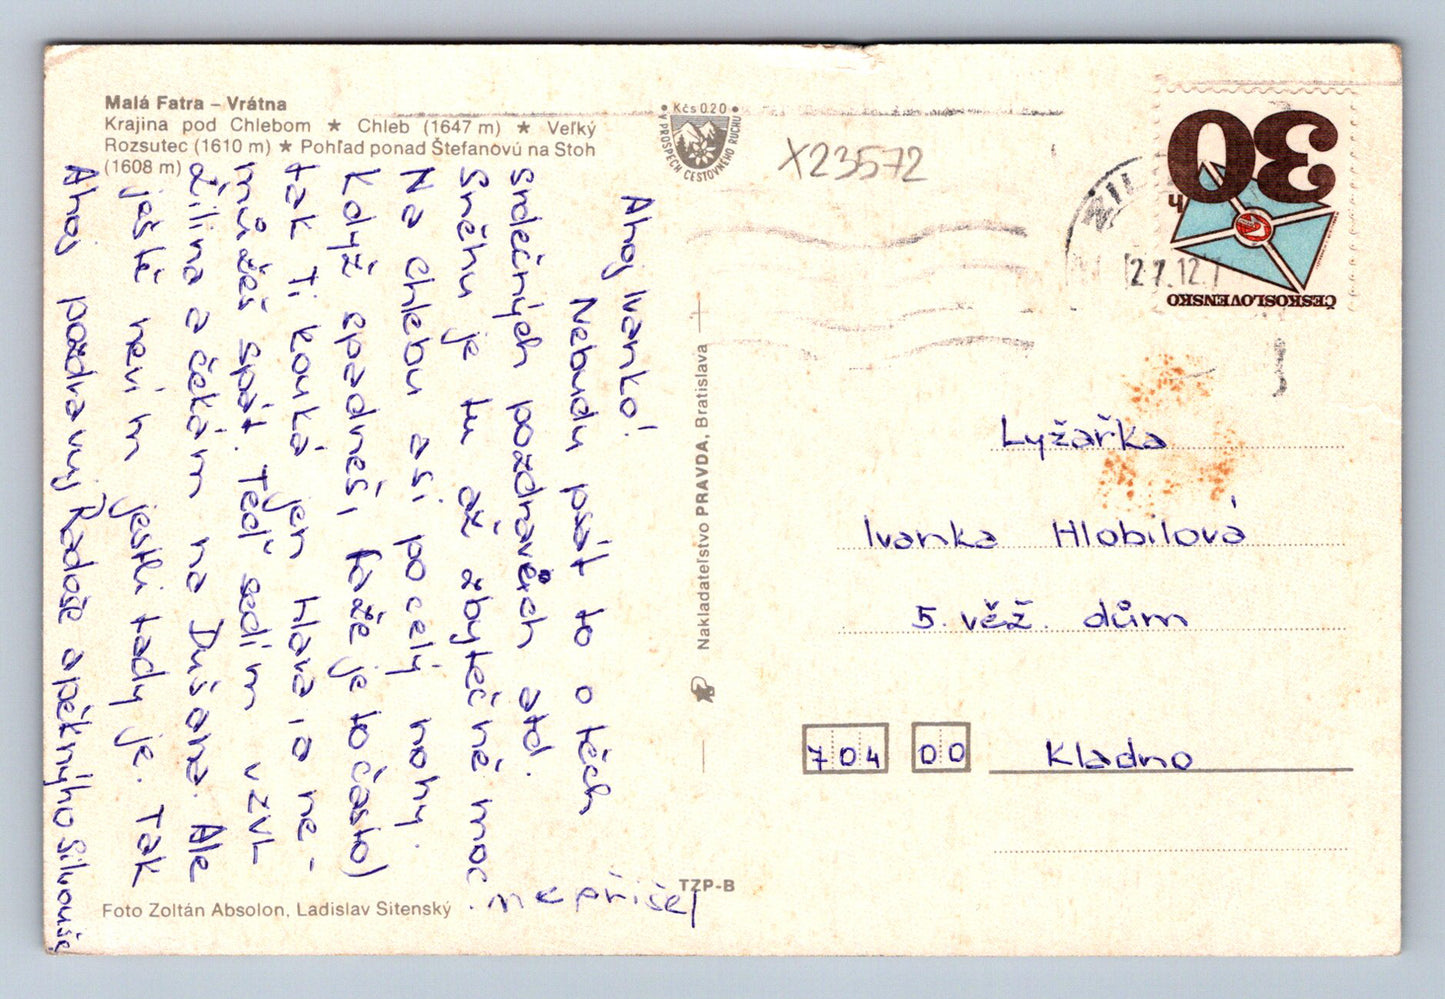 Malá Fatra – Vrátna
Krajina pod Chlebom ★ Chleb (1647 m) ★ Veľký
Rozsutec (1610 m) ★ Pohľad ponad Štefanovú na Stoh
(1608 m)
• Kčs 0.20 •
V PROSPECH CESTOVNÉHO RUCHU
X23572
Ahoj Ivanko!
Nebudu psát to o těch
srdečných pozdravech atd.
Sněhu je tu až zbytečně moc.
Na chlebu asi po celý nohy.
Když spadneš, (což je to často)
tak Ti kouká jen hlava, o ne-
můžeš spát. Teď sedím v ŽVL
Žilina a čekám na Dušana. Ale
ještě nevím jestli tady je. Tak
Ahoj pozdravuj Radoše a pěknýho Silvouše
nepřišel
Foto Zoltán Absolon, Ladislav Sitenský
Nakladateľstvo PRAVDA, Bratislava
TZP-B
30
h
ČESKOSLOVENSKO
ŽIL
27.12.
Lyžařka
Ivanka Hlobilová
5. věž. dům
704 00 Kladno